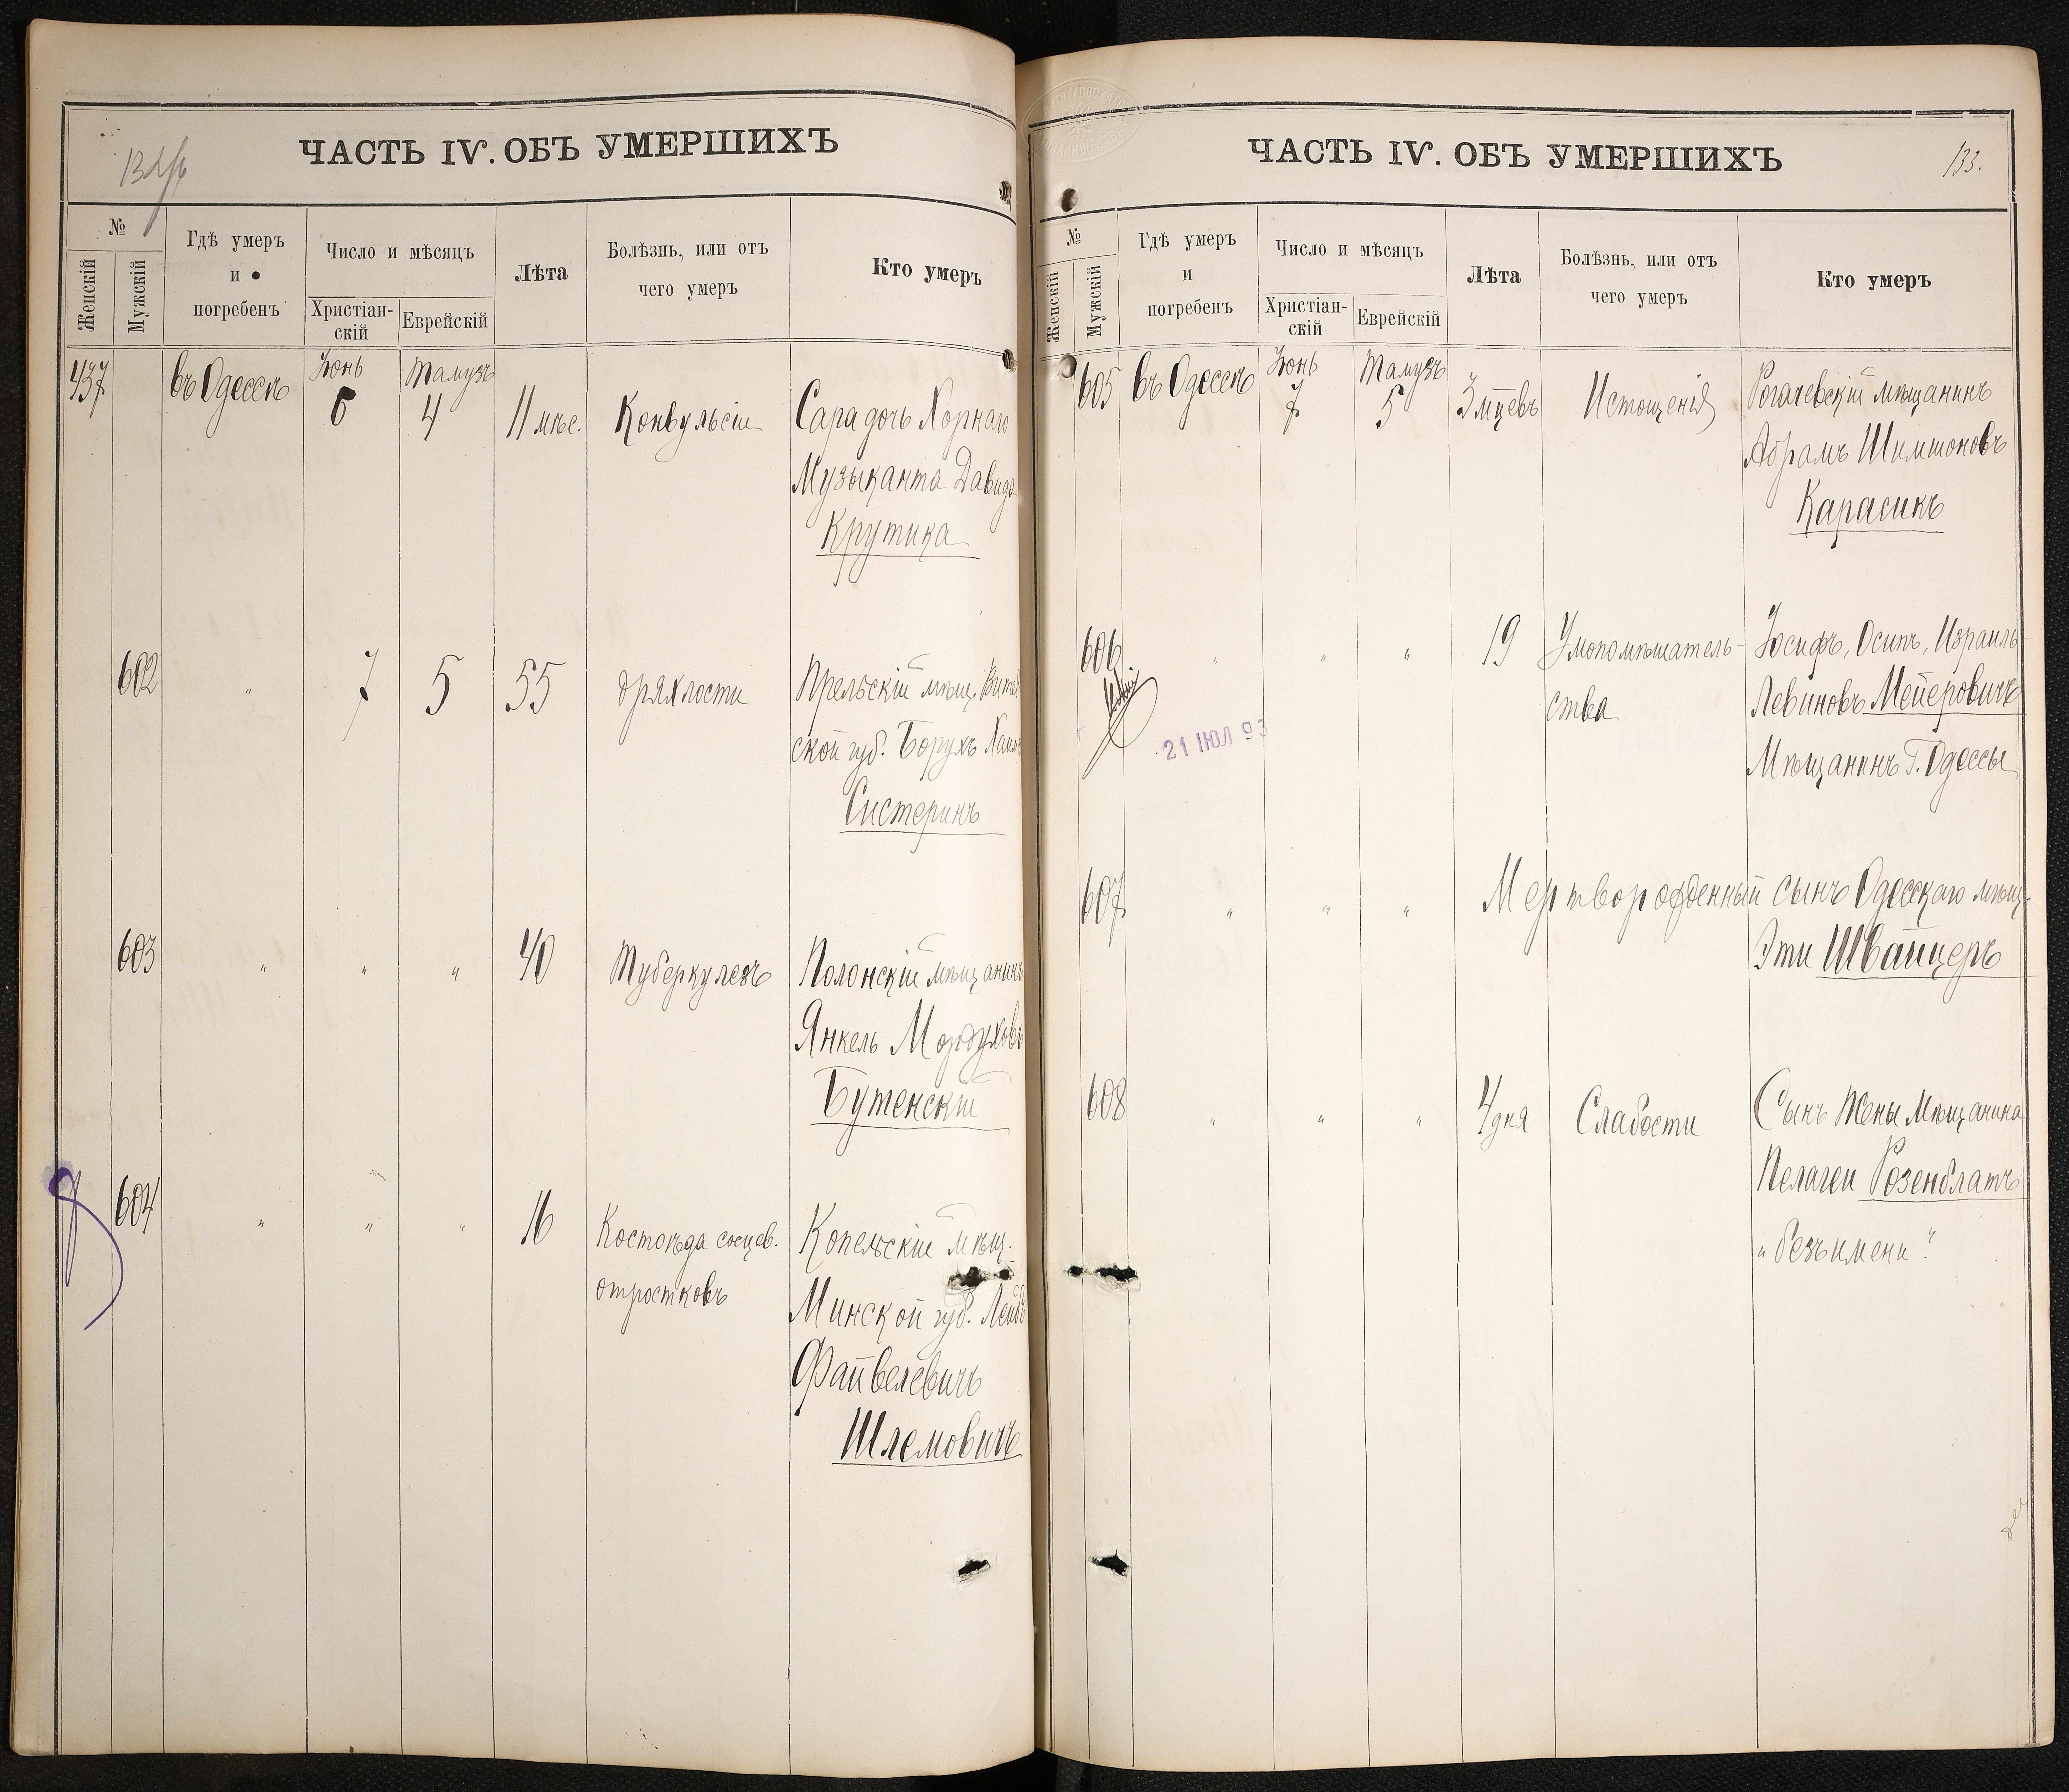 ЧАСТЬ IV. ОБЪ УМЕРШИХЪ
№
Женскій
Мужскій
Гдѣ умеръ
и
погребенъ
Число и мѣсяцъ
Христіан-
скій
Еврейскій
Лѣта
Болѣзнь, или отъ
чего умеръ
Кто умеръ
437
въ Одессѣ
Іюнь
6
Тамузъ
4
11 мѣс.
Конвульсіи
Сара дочь Хорнаго
Музыканта Давида
Крутика
602
"
7
5
55
дряхлости
Прельскій мѣщ. Витеб
ской губ. Борухъ
Систеринъ
603
"
"
"
40
Туберкулезъ
Полонскій мѣщанинъ
Янкель Мордуховъ
Бутенскій
604
"
"
"
16
Костоѣда сосцев.
отростковъ
Копельскій мѣщ.
Минской губ. Лейбъ
Файвелевичъ
Шлемовичъ
ЧАСТЬ IV. ОБЪ УМЕРШИХЪ
133.
№
Женскій
Мужскій
Гдѣ умеръ
и
погребенъ
Число и мѣсяцъ
Христіан-
скій
Еврейскій
Лѣта
Болѣзнь, или отъ
чего умеръ
Кто умеръ
605
въ Одессѣ
Іюнь
7
Тамузъ
5
3 мцевъ
Истощенія
Рогачевскій мѣщанинъ
Абрамъ Шимшоновъ
Карасикъ
606
"
"
"
19
Умопомѣшатель-
ства
Іосифъ, Осипъ, Израиль
Левиновъ Мейеровичъ
Мѣщанинъ Г. Одессы
21 ІЮЛ 93
607
"
"
"
Мертворожденный сынъ Одесскаго мѣщ.
Эти Швайцеръ
608
"
"
"
4 дня
Слабости
Сынъ Жены Мѣщанина
Пелагеи Розенблатъ
"безъ имени"